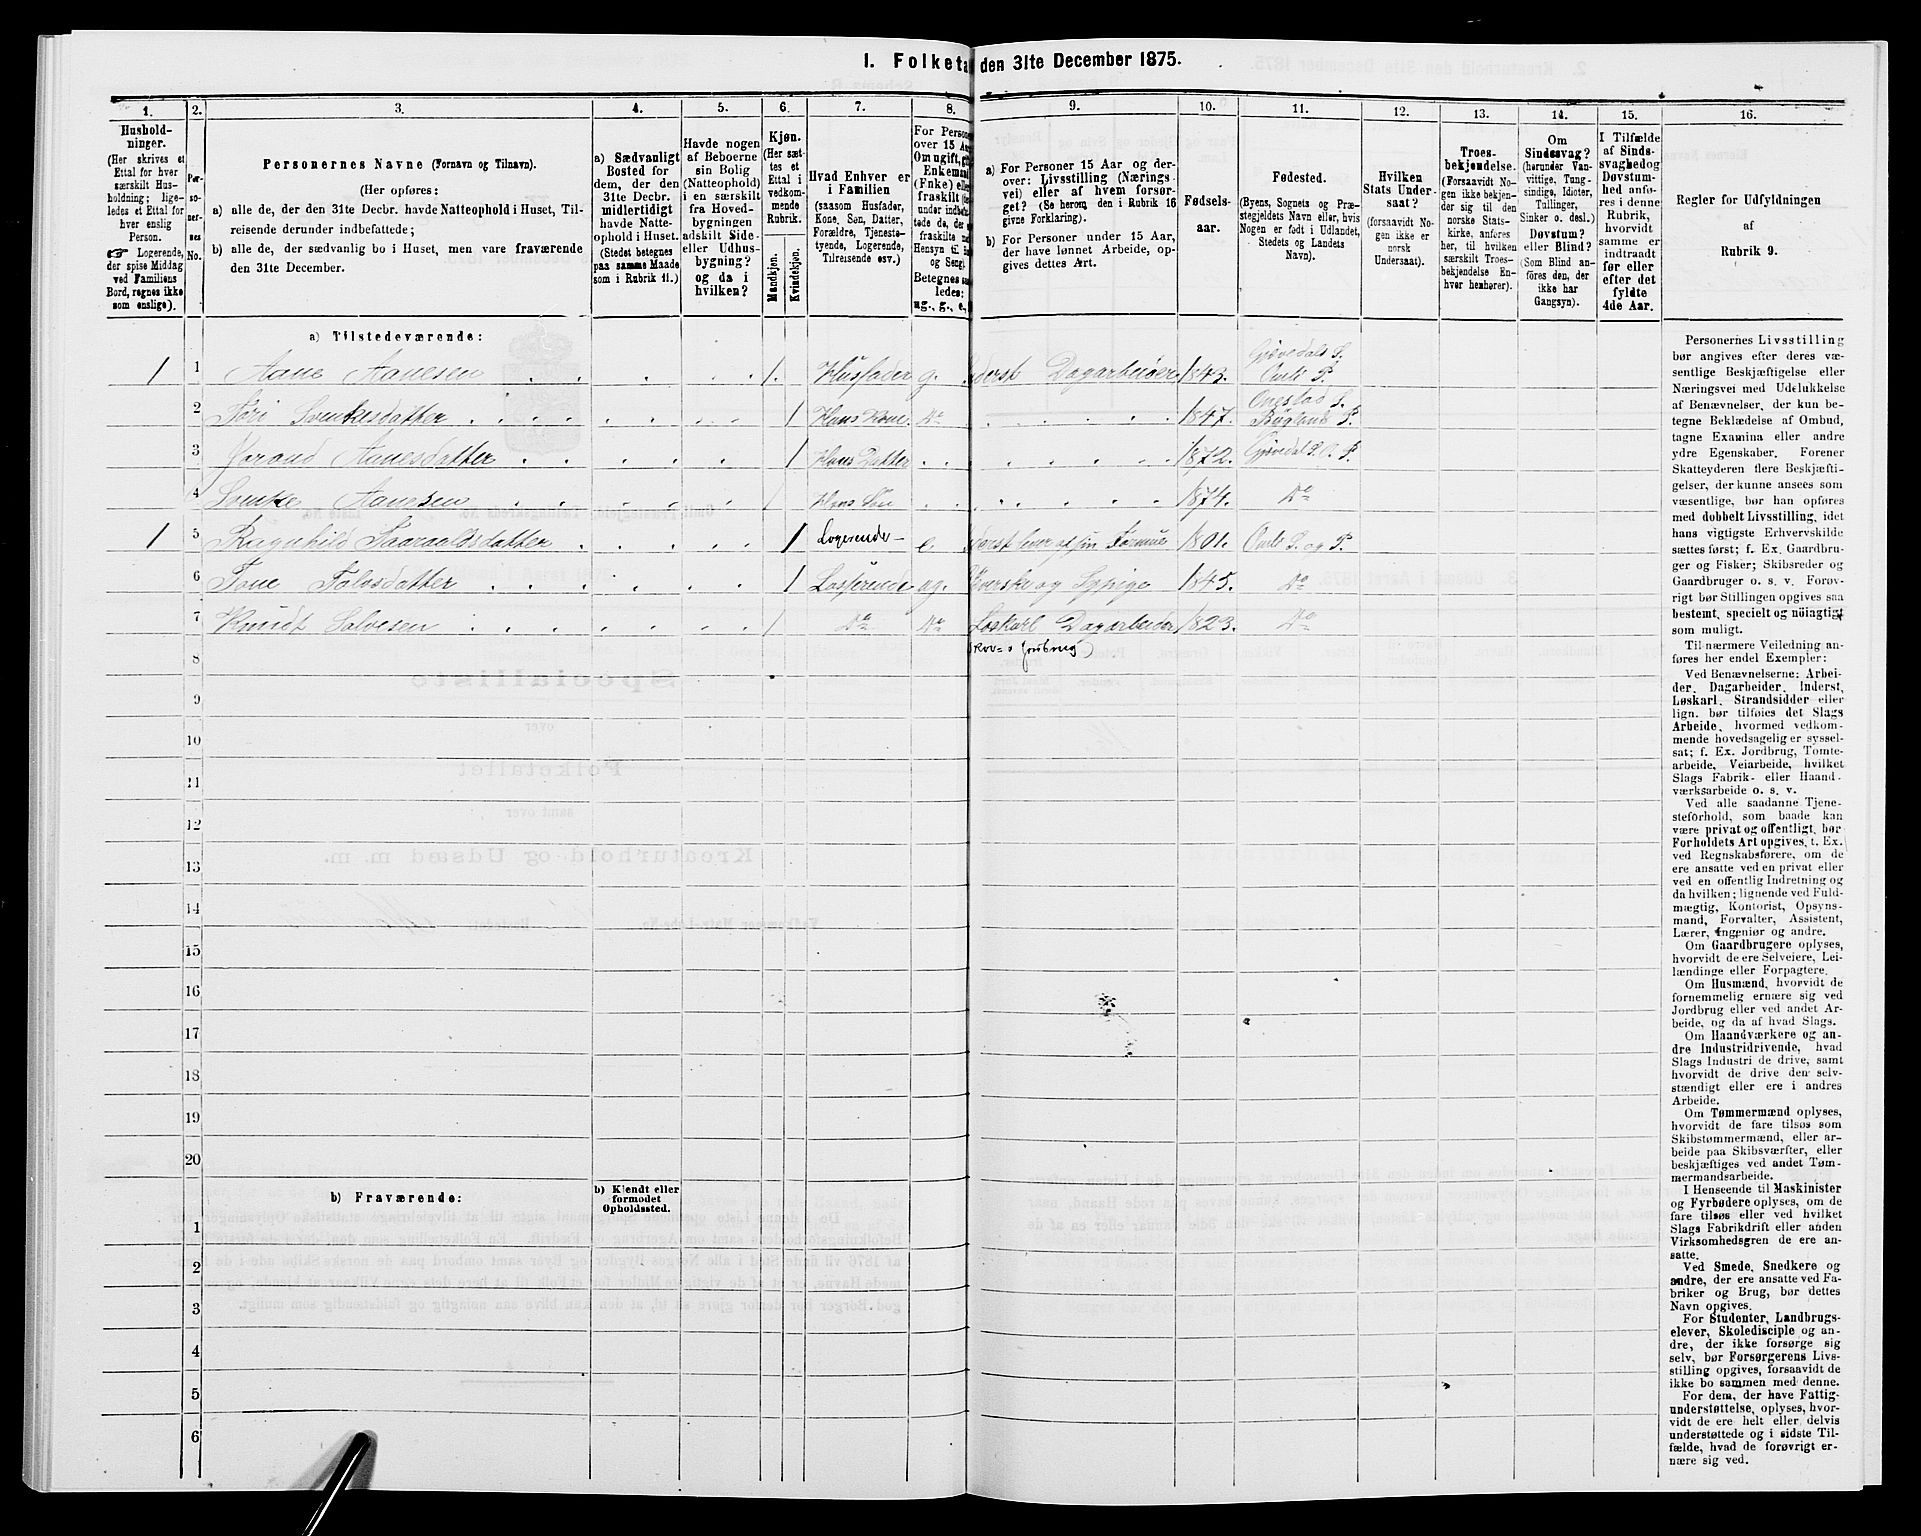 I. Folketa den 31te December 1875.
1.
2.
3.
4.
5.
6.
7.
8.
9.
10.
11.
12.
13.
14.
15.
16.
Hushold-
ninger.
(Her skrives et
Ettal for hver
særskilt Hus-
holdning; lige-
ledes et Ettal for
hver enslig
Person.
☞ Logerende,
der spise Middag
ved Familiens
Bord, regnes ikke
som enslige).
Per-
so-
ner-
nes
No.
Personernes Navne (Fornavn og Tilnavn).
(Her opføres:
a) alle de, der den 31te Decbr. havde Natteophold i Huset, Til-
reisende derunder indbefattede;
b) alle de, der sædvanlig bo i Huset, men vare fraværende
den 31te December.
a) Sædvanligt
Bosted for
dem, der den
31te Decbr.
midlertidigt
havde Natte-
ophold i Huset.
(Stedet betegnes
paa samme Maade
som i Rubrik 11.)
Havde nogen
af Beboerne
sin Bolig
(Natteophold)
i en særskilt
fra Hoved-
bygningen
adskilt Side-
eller Udhus-
bygning?
og da i
hvilken?
Kjøn.
(Her sæt-
tes et
Ettal i
vedkom-
mende
Rubrik.
Mandkjøn.
Kvindekjøn.
Hvad Enhver er
i Familien
(saasom Husfader,
Kone, Søn, Datter,
Forældre, Tjeneste-
tyende, Logerende,
Tilreisende osv.)
For Persone
over 15 Aa
Om ugift, gi
Enkemand
(Enke) elle
fraskilt (
under indb
tede de, der
fraskilte
Hensyn til
og Seng).
Betegnes s
ledes:
ug., g., e.,
a) For Personer 15 Aar og der-
over: Livsstilling (Nærings-
vei) eller af hvem forsør-
get? (Se herom den i Rubrik 16
givne Forklaring).
b) For Personer under 15 Aar,
der have lønnet Arbeide, op-
gives dettes Art.
Fødsels-
aar.
Fødested.
(Byens, Sognets og Præ-
stegjeldets Navn eller, hvis
Nogen er født i Udlandet,
Stedets og Landets
Navn).
Hvilken
Stats Under-
saat?
(forsaavidt No-
gen ikke er
norsk
Undersaat).
Troes-
bekjendelse.
(Forsaavidt No-
gen ikke bekjen-
der sig til den
norske Stats-
kirke, anføres
her, til hvilken
særskilt Troes-
bekjendelse En-
hver henhører).
Om
Sindssvag?
(herunder Van-
vittige, Tung-
sindige, Idioter,
Tullinger,
Sinker o. desl.)
Døvstum?
eller Blind?
(Som Blind an-
føres den, der
ikke har
Gangsyn).
I Tilfælde
af Sinds-
svaghed og
Døvstum-
hed anfø-
res i denne
Rubrik,
hvorvidt
samme er
indtraadt
før eller
efter det
fyldte
4de Aar.
Regler for Udfyldningen
af
Rubrik 9.
a) Tilstedeværende:
1 1 Aane Aanesen 1. Husfader g. Inderst Dagarbeider 1843. Gjøvedals S. Omli P.
2 Tori Svenkesdatter 1 Hans Kone. Do 1847. Onestad S. Bøgland P.
3 Jorand Aanesdatter 1 Hans Datter 1872. Gjøvedal S. O. P.
4 Svenke Aanesen 1 Hans Søn 1874. Do
1 5 Ragnhild Taaraaldsdatter 1 Logerende e. Inderst lever af sin Formue 1801. Omli S. og P.
6 Tone Tolvsdatter 1 Losjerende ug. Væverske og Sypige 1845. Do
7 Knudt Salvesen 1 Do Do Løskarl Dagarbeider 1823. Do
(Skov- o Jordbrug)
8
9
10
11
12
13
14
15
16
17
18
19
20
b) Fraværende:
b) Kjendt eller
formodet
Opholdssted.
1
2
3
4
5
6
Personernes Livsstilling
bør angives efter deres væ-
sentlige Beskjæftigelse eller
Næringsvei med Udelukkelse
af Benævnelser, der kun be-
tegne Beklædelse af Ombud,
tagne Examina eller andre
ydre Egenskaber. Forener
Skatteyderen flere Beskjæfti-
gelser, der kunne ansees som
væsentlige, bør han opføres
med dobbelt Livsstilling, idet
hans vigtigste Erhvervskilde
sættes først; f. Ex. Gaardbru-
ger og Fisker; Skibsreder og
Gaardbruger o. s. v. Forøv-
rigt bør Stillingen opgives saa
bestemt, specielt og nöiagtigt
som muligt.
Til nærmere Veiledning an-
føres her endel Exempler:
Ved Benævnelserne: Arbei-
der, Dagarbeider, Inderst,
Løskarl, Strandsidder eller
lign. bør tilføies det Slags
Arbeide, hvormed vedkom-
mende hovedsagelig er syssel-
sat; f. Ex. Jordbrug, Tomte-
arbeide, Veiarbeide, hvilket
Slags Fabrik- eller Haand-
værksarbeide o. s. v.
Ved alle saadanne Tjene-
steforhold, som baade kan
være privat og offentligt, bør
Forholdets Art opgives, t. Ex.
ved Regnskabsførere, om de
ere ansatte ved en privat eller
ved en offentlig Indretning og
da hvilken; lignende ved Fuld-
mægtig, Kontorist, Opsyns-
mand, Forvalter, Assistent,
Lærer, Ingeniør og andre.
Om Gaardbrugere oplyses,
hvorvidt de ere Selveiere, Lei-
lændinge eller Forpagtere.
Om Husmænd, hvorvidt de
fornemmelig ernære sig ved
Jordbrug eller ved andet Ar-
beide, og da af hvad Slags.
Om Haandværkere og an-
dre Industridrivende, hvad
Slags Industri de drive, samt
hvorvidt de drive den selv-
stændigt eller ere i andres
Arbeide.
Om Tømmermænd oplyses,
hvorvidt de fare tilsøs som
Skibstømmermænd, eller ar-
beide paa Skibsværfter, eller
beskjæftiges ved andet Tøm-
mermandsarbeide.
I Henseende til Maskinister
og Fyrbødere oplyses, om de
fare tilsøs eller ved hvilket
Slags Fabrikdrift eller anden
Virksomhedsgren de ere an-
satte.
Ved Smede, Snedkere og
andre, der ere ansatte ved Fa-
briker og Brug, bør dettes
Navn opgives.
For Studenter, Landbrugs-
elever, Skoledisciple og an-
dre, der ikke forsørge sig
selv, bør Forsørgerens Livs-
stilling opgives, forsaavidt de
ikke bo sammen med denne.
For dem, der have Fattig-
understøttelse, oplyses, hvor-
vidt de ere helt eller delvis
understøttede og i sidste Til-
fælde, hvad de forøvrigt er-
nære sig ved.